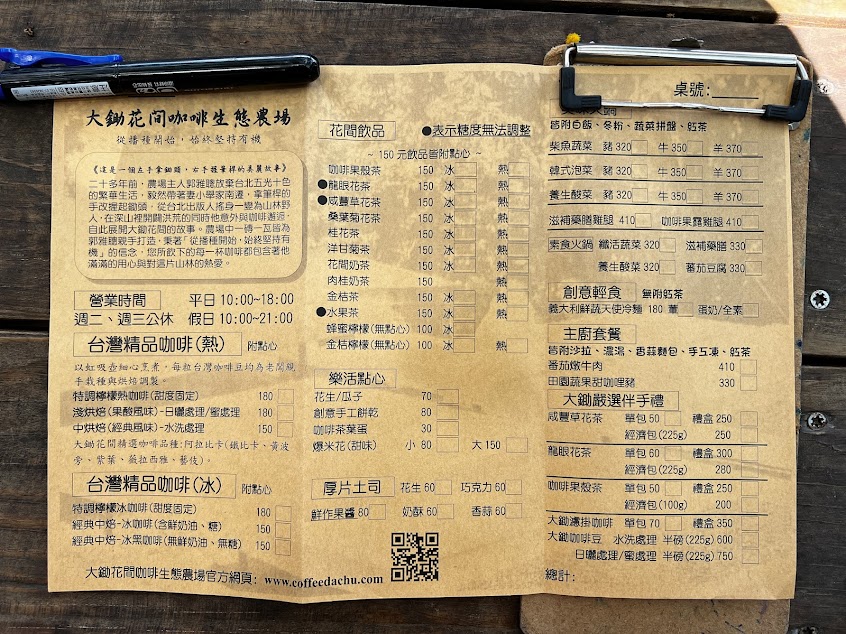 大鋤花间咖啡生態農場
從播種開始，始終堅持有機
《這是一個左手拿鋤頭，右手握筆桿的美麗故事》
二十多年前，農場主人郭雅聰放棄台北五光十色
的繁華生活，毅然帶著妻小舉家南遷，拿筆桿的
手改握起鋤頭，從台北出版人搖身一變為山林野
人，在深山裡開闢洪荒的同時他意外與咖啡邂逅，
自此展開大鋤花間的故事。農場中一磚一瓦皆為
郭雅聰親手打造，秉著「從播種開始，始終堅持有
機」的信念，您所飲下的每一杯咖啡都包含著他
滿滿的用心與對這片山林的熱愛。
營業時間 平日 10:00~18:00
週二、週三公休 假日 10:00~21:00
台灣精品咖啡(熱) 附點心
以虹吸壺細心烹煮，每粒台灣咖啡豆均為老闆親
手栽種與烘焙調製。
特調檸檬熱咖啡(甜度固定) 180
淺烘焙(果酸風味)-日曬處理/蜜處理 180
中烘焙(經典風味)-水洗處理 150
大鋤花間精選咖啡品種:阿拉比卡(鐵比卡、黃波
旁、紫葉、薇拉西雅、藝伎)。
台灣精品咖啡(冰) 附點心
特調檸檬冰咖啡(甜度固定) 180
經典中焙-冰咖啡(含鮮奶油、糖) 150
經典中焙-冰黑咖啡(無鮮奶油、無糖) 150
大鋤花間咖啡生態農場官方網頁：www.coffeedachu.com
花間飲品 ●表示糖度無法調整
~ 150 元飲品皆附點心 ~
咖啡果殼茶 150 冰 熱
●龍眼花茶 150 冰 熱
●咸豐草花茶 150 冰 熱
桑葉菊花茶 150 冰 熱
桂花茶 150 冰 熱
洋甘菊茶 150 冰 熱
花間奶茶 150 冰 熱
肉桂奶茶 150 熱
金桔茶 150 冰 熱
●水果茶 150 冰 熱
蜂蜜檸檬(無點心) 100 冰 熱
金桔檸檬(無點心) 100 冰 熱
樂活點心
花生/瓜子 70
創意手工餅乾 80
咖啡茶葉蛋 30
爆米花(甜味) 小 80 大 150
厚片土司 花生 60 巧克力 60
鮮作果醬 80 奶酥 60 香蒜 60
桌號：
皆附白飯、冬粉、蔬菜拼盤、紅茶
柴魚蔬菜 豬 320 牛 350 羊 370
韓式泡菜 豬 320 牛 350 羊 370
養生酸菜 豬 320 牛 350 羊 370
滋補藥膳雞腿 410 咖啡果露雞腿 410
素食火鍋 纖活蔬菜 320 滋補藥膳 330
養生酸菜 320 蕃茄豆腐 330
創意輕食 無附紅茶
義大利鮮蔬天使冷麵 180 葷 蛋奶/全素
主廚套餐
皆附沙拉、濃湯、香蒜麵包、手工凍、紅茶
蕃茄燉牛肉 410
田園蔬果甜咖哩豬 330
大鋤嚴選伴手禮
咸豐草花茶 單包 50 禮盒 250
經濟包(225g) 250
龍眼花茶 單包 60 禮盒 300
經濟包(225g) 280
咖啡果殼茶 單包 50 禮盒 250
經濟包(100g) 200
大鋤濾掛咖啡 單包 70 禮盒 350
大鋤咖啡豆 水洗處理 半磅(225g) 600
日曬處理/蜜處理 半磅(225g) 750
總計：